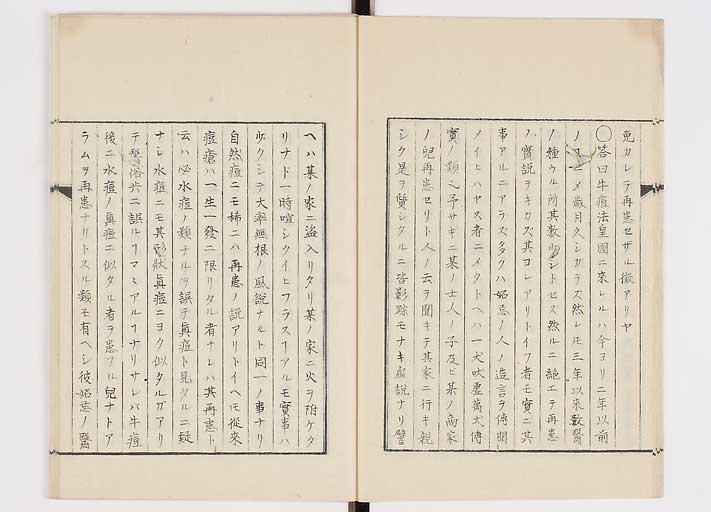 免カレテ再患セザル徴アリヤ
〇答曰牛痘法皇國ニ來レルハ今ヨリ二年以前
メ歳月久シカラズ然レ𪜈三年以來數醫
ノ種ウル所其數少シトセズ然ルニ絶エテ再患
ノ實説ヲキカズ其コレアリトイフ者モ實ニ其
事アルニアラズ多クハ妬忌ノ人ノ造言ヲ傳聞
メイヒハヤス者ニメタトヘハ一犬吠虚萬犬傳
實ノ類ニ予サキニ某ノ士人ノ子及ビ某ノ商家
ノ兒再患セリト人ノ云ヲ聞キテ其家ニ行キ親
シク是ヲ質シタルニ皆影踪モナキ虚説ナリ譬
ヘハ某ノ家ニ盗入リタリ某ノ家ニ火ヲ附ケタ
リナド一時喧シクイヒフラスヿアルモ實事ハ
少クシテ大率無根ノ風説ナルト同一ノ事ナリ
自然痘ニモ稀ニハ再患ノ説アリトイヘ𪜈從來
痘瘡ハ一生一發ニ限リタル者ナレハ其再患ト
云ハ必水痘ノ類ナルヲ誤テ真痘ト見タルニ疑
ナシ水痘ニモ其形狀真痘ニヨク似タルガアリ
テ醫俗共ニ誤ルヿマヽアルヿナリサレバ牛痘
後ニ水痘ノ真痘ニ似タル者ヲ患フル兒ナトア
ラムヲ再患ナリトスル類モ有ヘシ彼妬忌ノ醫